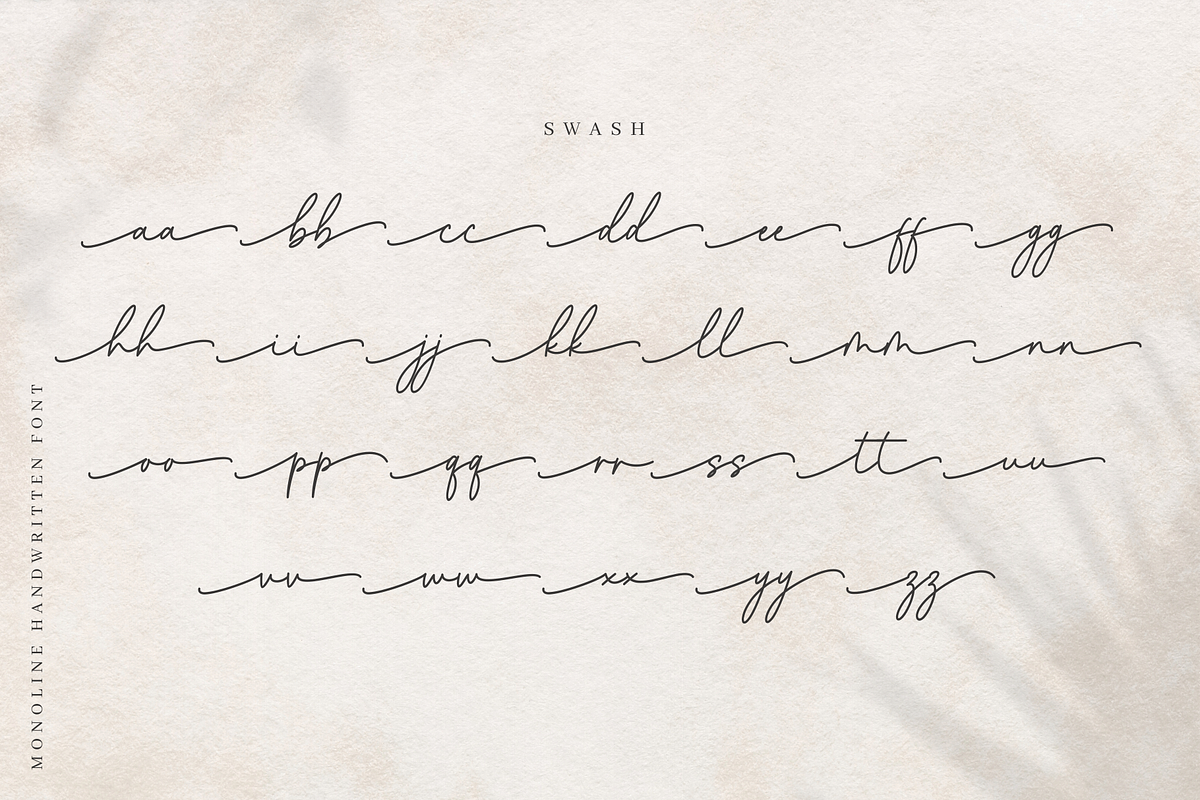 SWASH
aa bb cc dd ee ff gg
hh ii jj kk ll mm nn
oo pp qq rr ss tt uu
vv ww xx yy zz
MONOLINE HANDWRITTEN FONT